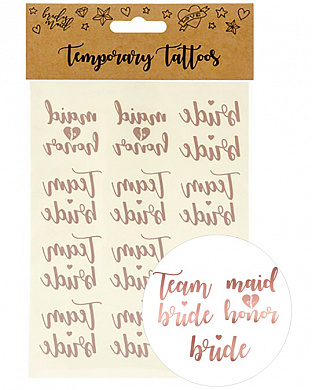 bridesmaid
LOVE
Temporary Tattoos
maid maid bride
honor honor bride
Team Team bride
bride bride bride
Team Team Team
bride bride bride
Team Team Team
bride bride bride
Team maid
bride honor
bride